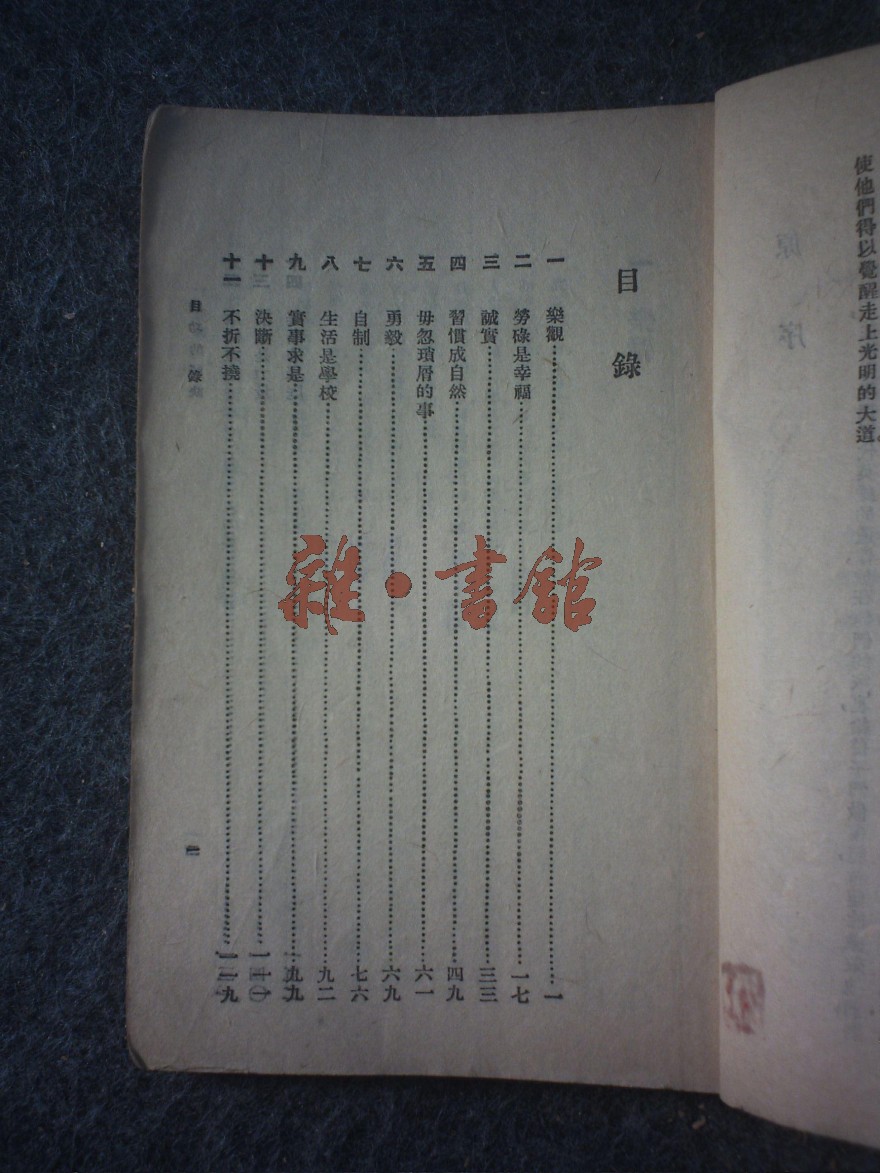 使他們得以覺醒走上光明的大道。
目錄
一 樂觀……一
二 勞碌是幸福……一七
三 誠實……三三
四 習慣成自然……四九
五 毋忽瑣屑的事……六一
六 勇毅……六九
七 自制……七六
八 生活是學校……九二
九 實事求是……九九
十 決斷……
十一 不折不撓……
目 錄
雜·書館